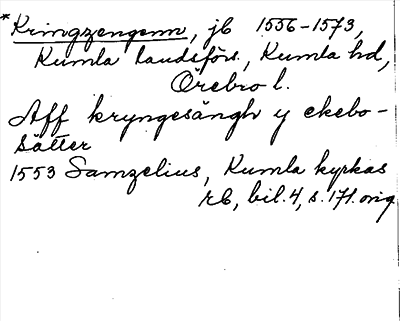 * Kringzengenn, jb 1556-1573,
Kumla landsförs., Kumla hd,
Örebro l.
Aff kryngesängh y ekebo-
sätter
1553 Samzelius, Kumla kyrkas
rb, bil. 4, s. 171. orig